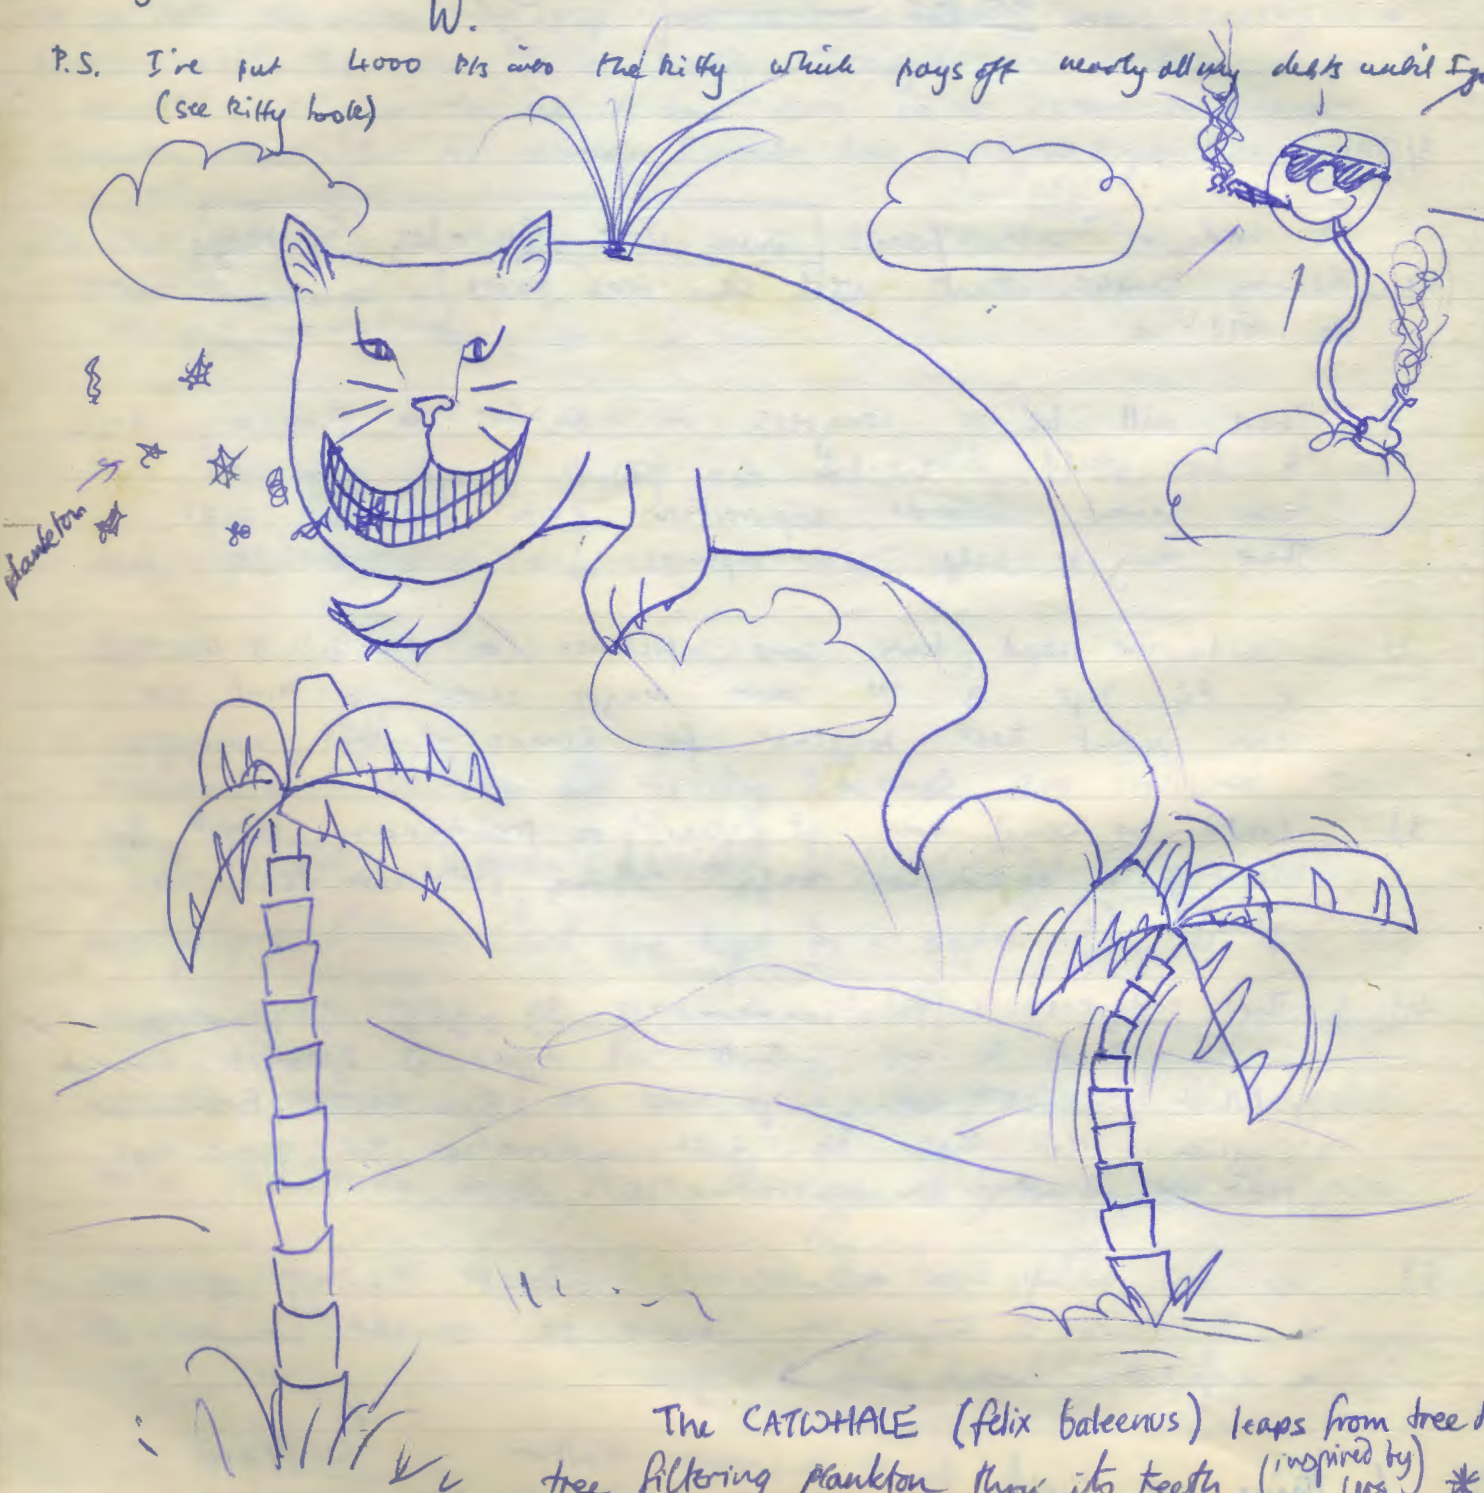 W.
P.S. I've put 4000 pts into the kitty which pays off nearly all my debts until I
(see kitty book)
plankton
The CATWHALE (felix baleenus) leaps from tree
tree filtering plankton thru its teeth (inspired by) *